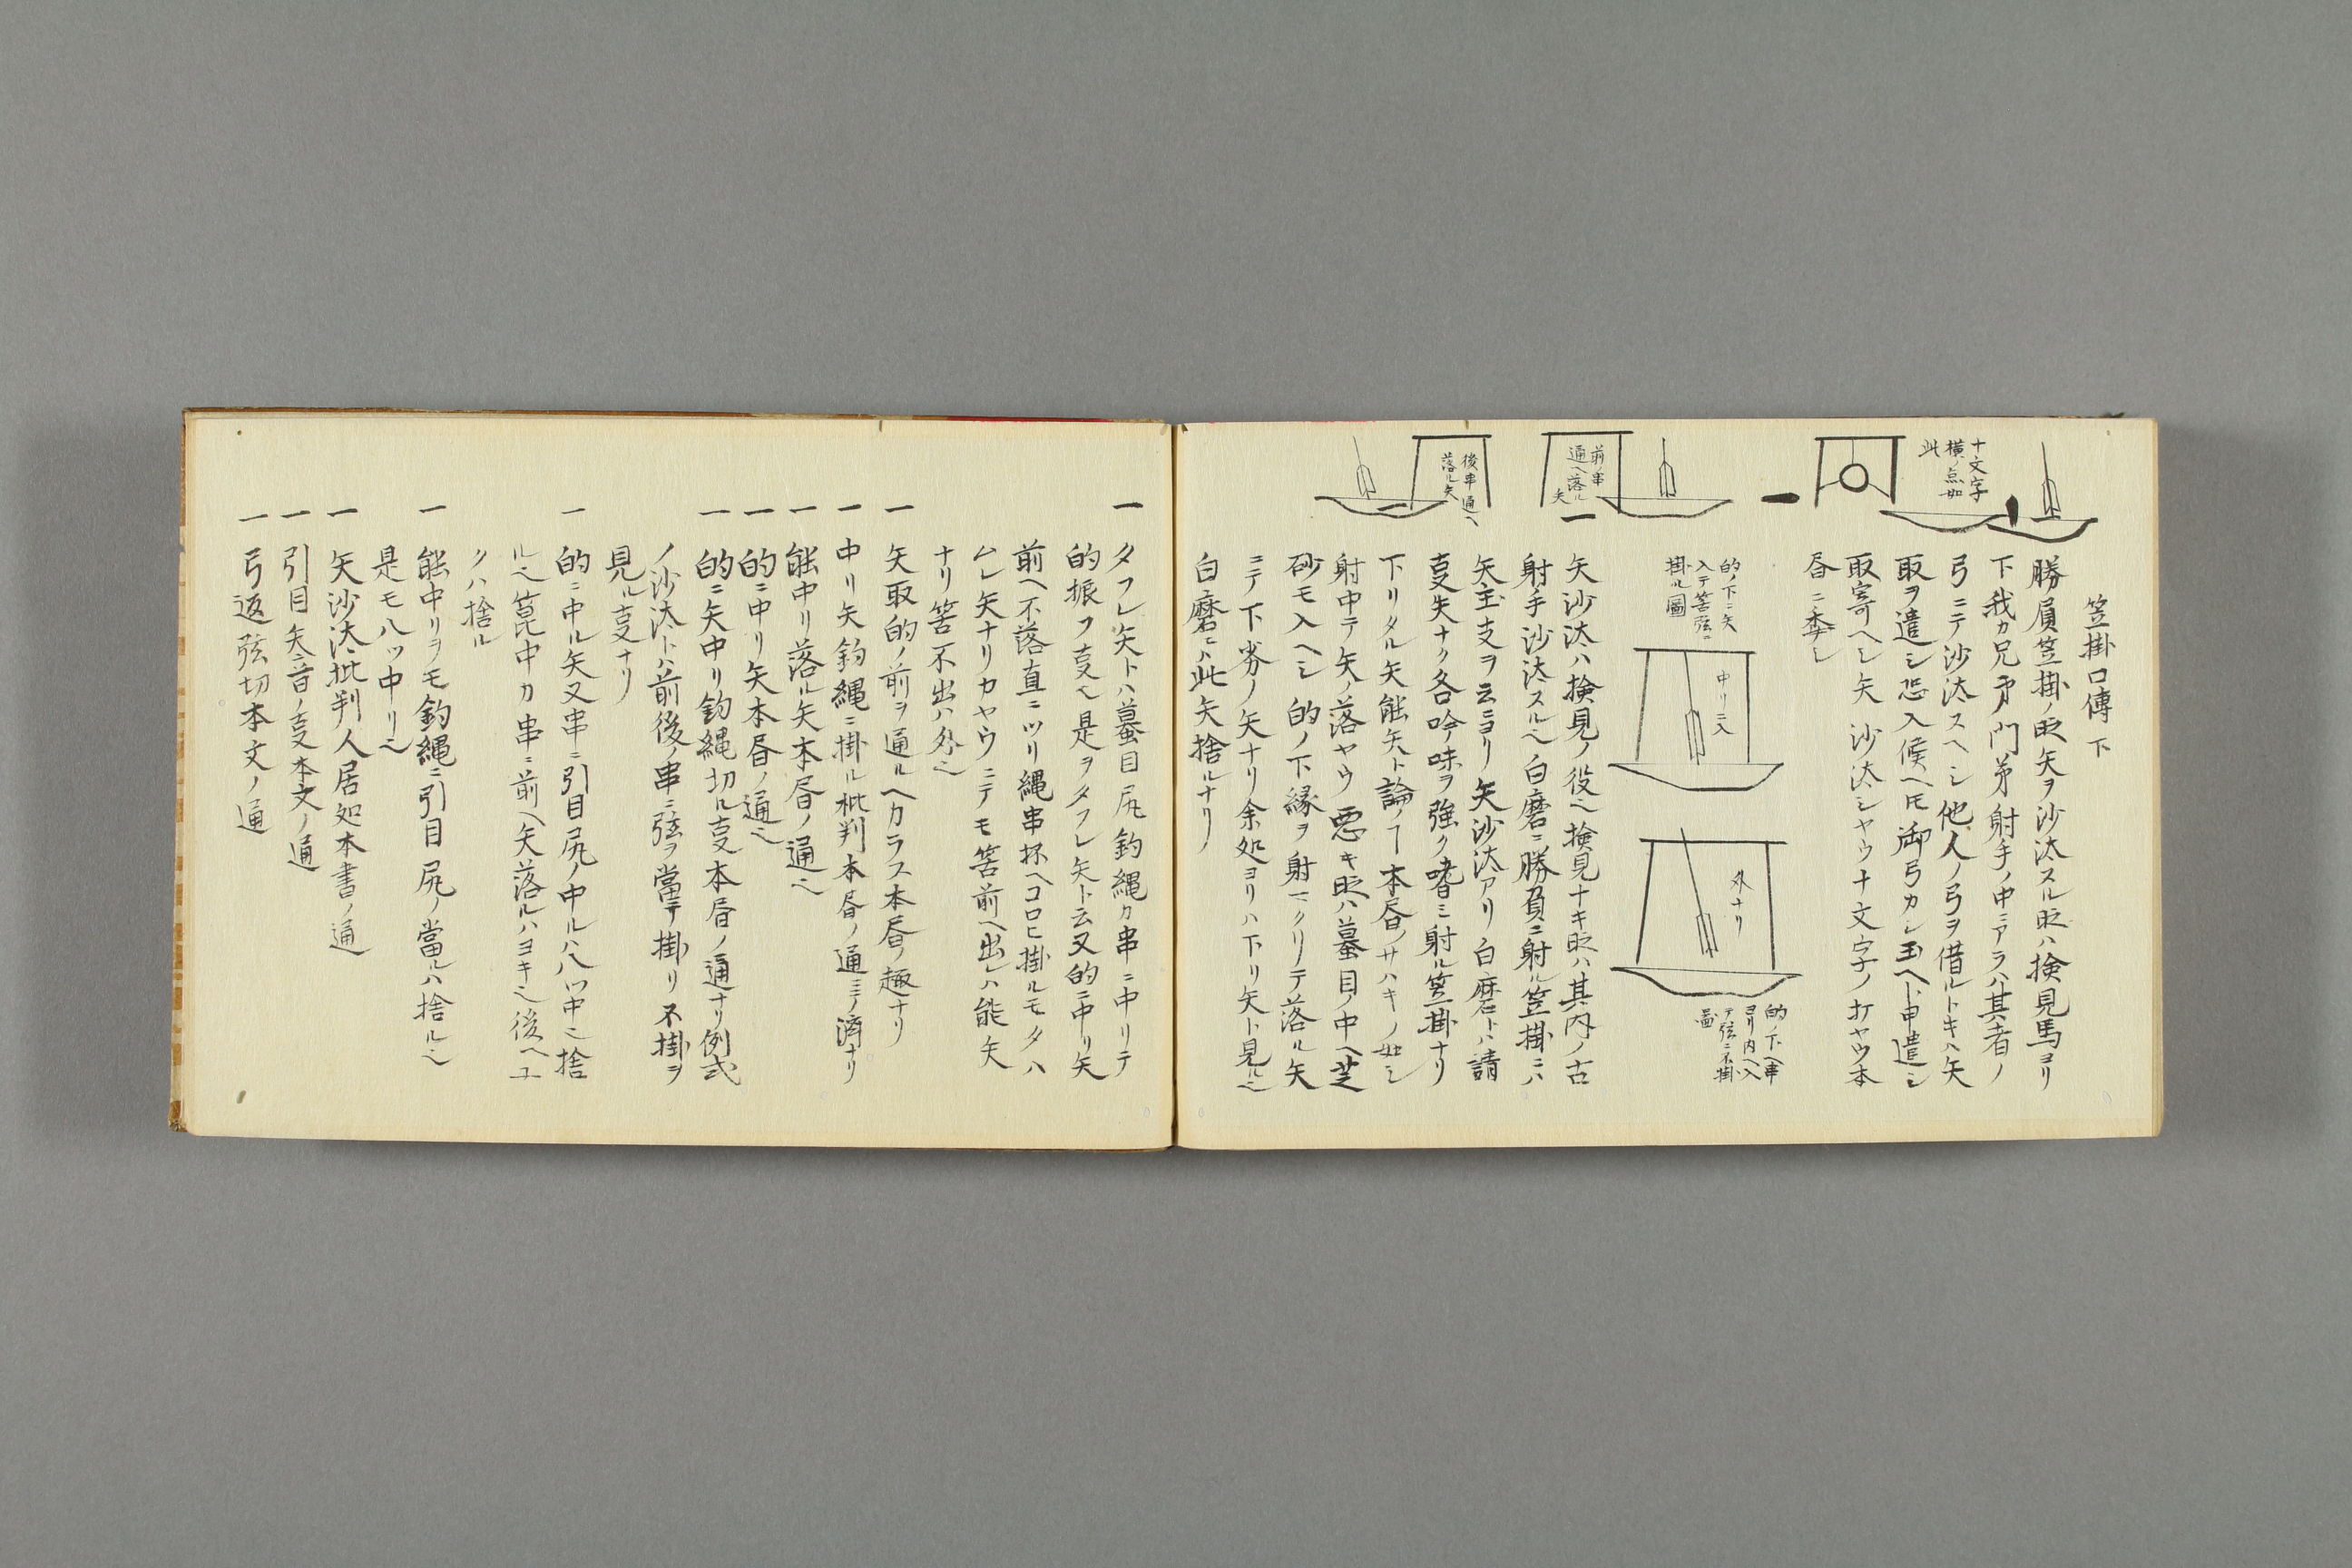 笠掛口傳下
勝屓笠掛ノ时矢ヲ沙汰スル时ハ検見馬ヨリ
下我カ兄弟門弟射手ノ中ニアラハ其者ノ
弓ニテ沙汰スヘシ他人ノ弓ヲ借ルトキハ矢
取ヲ遣シ恐入候ヘ𪜈御弓カシ玉ヘト申遣シ
取寄ヘシ矢沙汰シヤウ十文字ノ打ヤウ本
昏ニ委シ
十文字
横ノ点如
此
前ノ串
通ヘ落ル
矢
後串通ヘ
落ル矢
的ノ下ニ矢
入テ筈弦ニ
掛ル圖
中リニ入
外ナリ
的ノ下ヘ串
ヨリ内ヘ入
テ弦ニ不掛
啚
一
矢沙汰ハ検見ノ役也検見ナキ时ハ其内ノ古
射手沙汰スル也白磨ニ勝負ニ射ル笠掛ニハ
矢主支ヲ云ニヨリ矢沙汰アリ白磨トハ請
叓矢ナク各吟味ヲ強ク嗜ミ射ル笠掛ナリ
下リタル矢能矢ト論ノヿ本昏ノサハキノ如シ
射中テ矢ノ落ヤウ悪キ时ハ蟇目ノ中ヘ芝
砂モ入ヘシ的ノ下縁ヲ射マクリテ落ル矢
ニテ下劣ノ矢ナリ余処ヨリハ下リ矢ト見ル也
白磨ニハ此矢捨ルナリ
一 タフレ矢トハ蟇目尻釣縄カ串ニ中リテ
的振フ叓也是ヲタフレ矢ト云又的ニ中リ矢
前ヘ不落直ニツリ縄串抔ヘコロヒ掛ルモタハ
ムレ矢ナリカヤウニテモ筈前ヘ出レハ能矢
ナリ筈不出ハ外也
一 矢取的ノ前ヲ通ルヘカラス本昏ノ趣ナリ
一 中リ矢釣縄ニ掛ル批判本昏ノ通ニテ濟ナリ
一 能中リ落ル矢本昏ノ通也
一 的ニ中リ矢本昏ノ通也
一 的ニ矢中リ釣縄切ル叓本昏ノ通ナリ例式
ノ沙汰トハ前後ノ串ニ弦ヲ當テ掛リ不掛ヲ
見ル叓ナリ
一 的ニ中ル矢又串ニ引目尻ノ中ルハ八ツ中也捨
ル也箟中カ串ニ前ヘ矢落ルハヨキ也後ヘユ
クハ捨ル
一 能中リヲモ釣縄ニ引目尻ノ當ルハ捨ル也
是モ八ツ中リ也
一 矢沙汰批判人居処本書ノ通
一 引目矢音ノ叓本文ノ通
一 弓返弦切本文ノ通